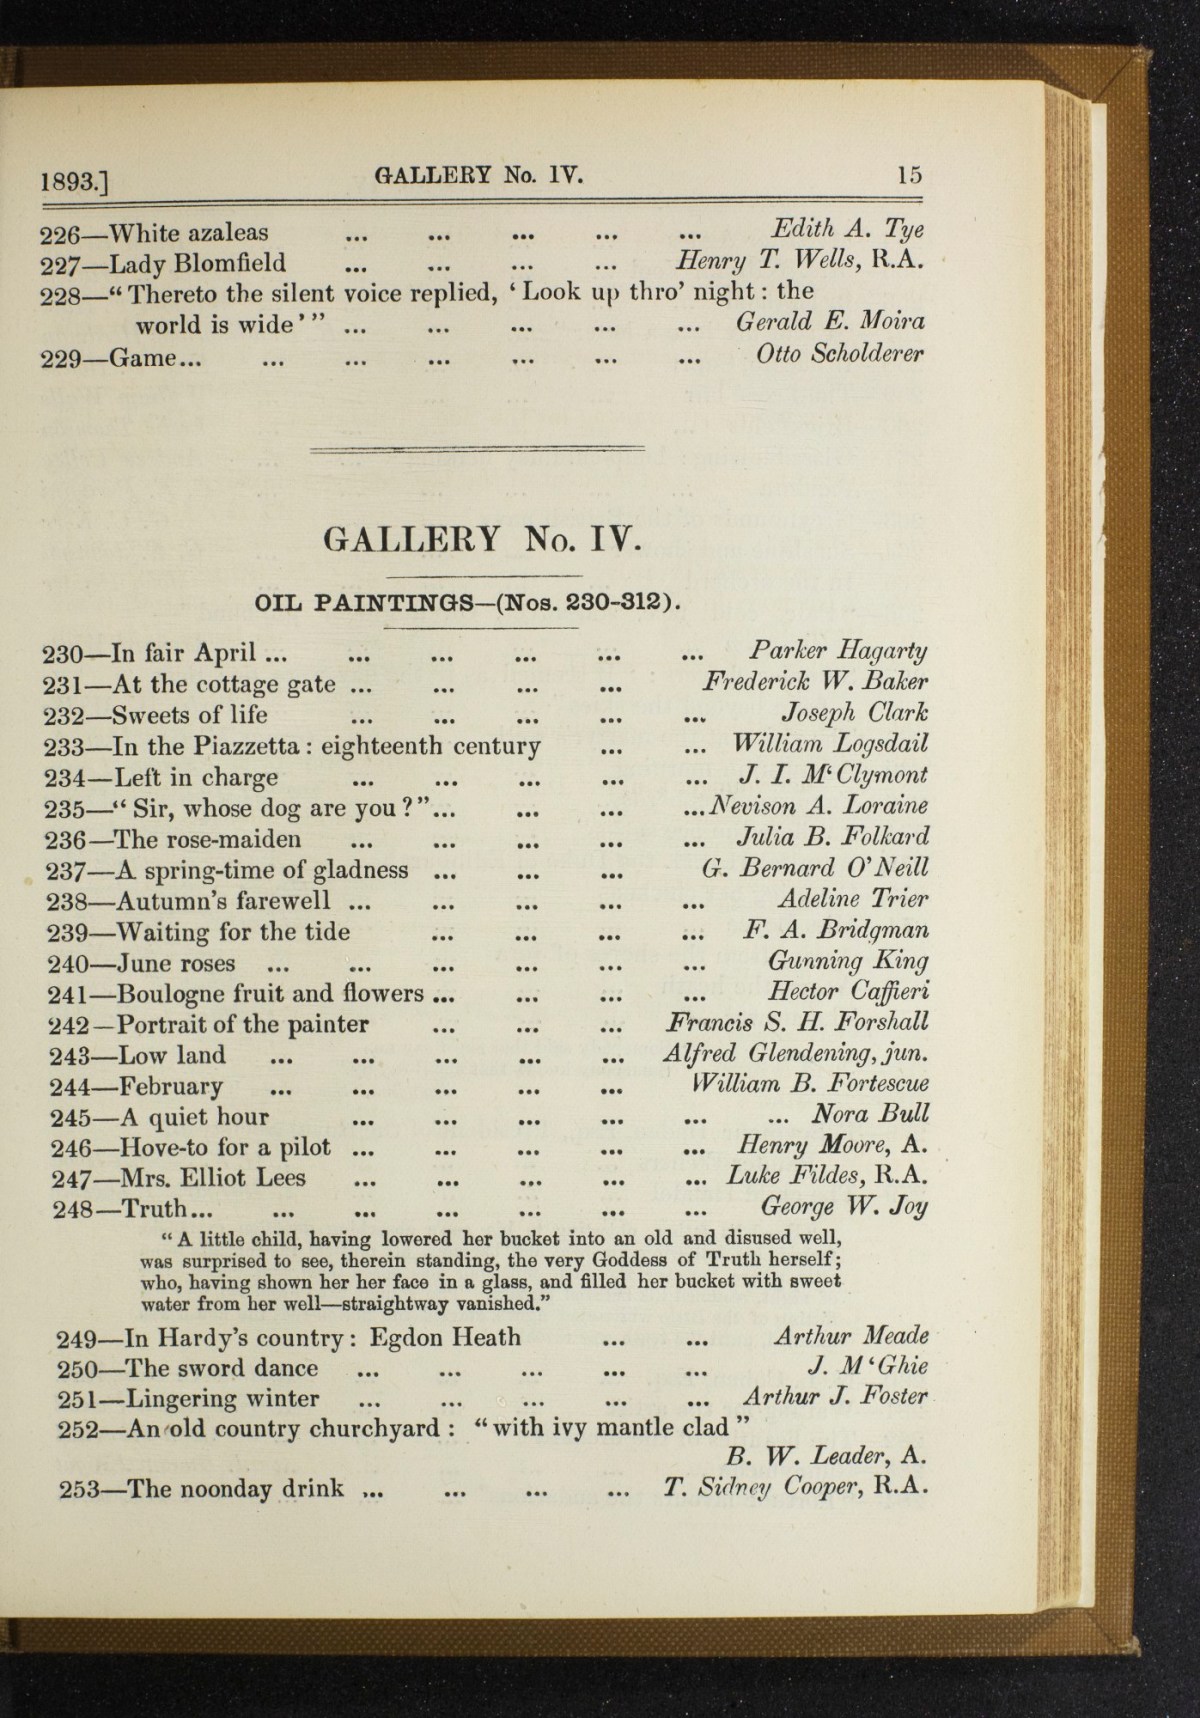 1893.] GALLERY No. IV. 15
226—White azaleas ... ... ... ... ... Edith A. Tye
227—Lady Blomfield ... ... ... ... Henry T. Wells, R.A.
228—“Thereto the silent voice replied, ‘Look up thro’ night: the
world is wide’” ... ... ... ... ... Gerald E. Moira
229—Game... ... ... ... ... ... ... Otto Scholderer
GALLERY No. IV.
OIL PAINTINGS—(Nos. 230-312).
230—In fair April ... ... ... ... ... ... Parker Hagarty
231—At the cottage gate ... ... ... ... Frederick W. Baker
232—Sweets of life ... ... ... ... ... Joseph Clark
233—In the Piazzetta: eighteenth century ... ... William Logsdail
234—Left in charge ... ... ... ... ... J. I. M‘Clymont
235—“Sir, whose dog are you?”... ... ... ...Nevison A. Loraine
236—The rose-maiden ... ... ... ... ... Julia B. Folkard
237—A spring-time of gladness ... ... ... G. Bernard O’Neill
238—Autumn’s farewell ... ... ... ... ... Adeline Trier
239—Waiting for the tide ... ... ... ... F. A. Bridgman
240—June roses ... ... ... ... ... ... Gunning King
241—Boulogne fruit and flowers ... ... ... ... Hector Caffieri
242—Portrait of the painter ... ... ... Francis S. H. Forshall
243—Low land ... ... ... ... ... Alfred Glendening, jun.
244—February ... ... ... ... ... William B. Fortescue
245—A quiet hour ... ... ... ... ... ... Nora Bull
246—Hove-to for a pilot ... ... ... ... ... Henry Moore, A.
247—Mrs. Elliot Lees ... ... ... ... ... Luke Fildes, R.A.
248—Truth... ... ... ... ... ... ... George W. Joy
“A little child, having lowered her bucket into an old and disused well,
was surprised to see, therein standing, the very Goddess of Truth herself;
who, having shown her her face in a glass, and filled her bucket with sweet
water from her well—straightway vanished.”
249—In Hardy’s country: Egdon Heath ... ... Arthur Meade
250—The sword dance ... ... ... ... ... J. M‘Ghie
251—Lingering winter ... ... ... ... ... Arthur J. Foster
252—An old country churchyard: “with ivy mantle clad”
B. W. Leader, A.
253—The noonday drink ... ... ... ... T. Sidney Cooper, R.A.